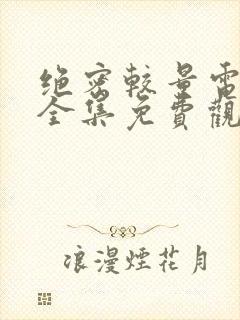 绝密較量電
全集免費觀
浪漫煙花月